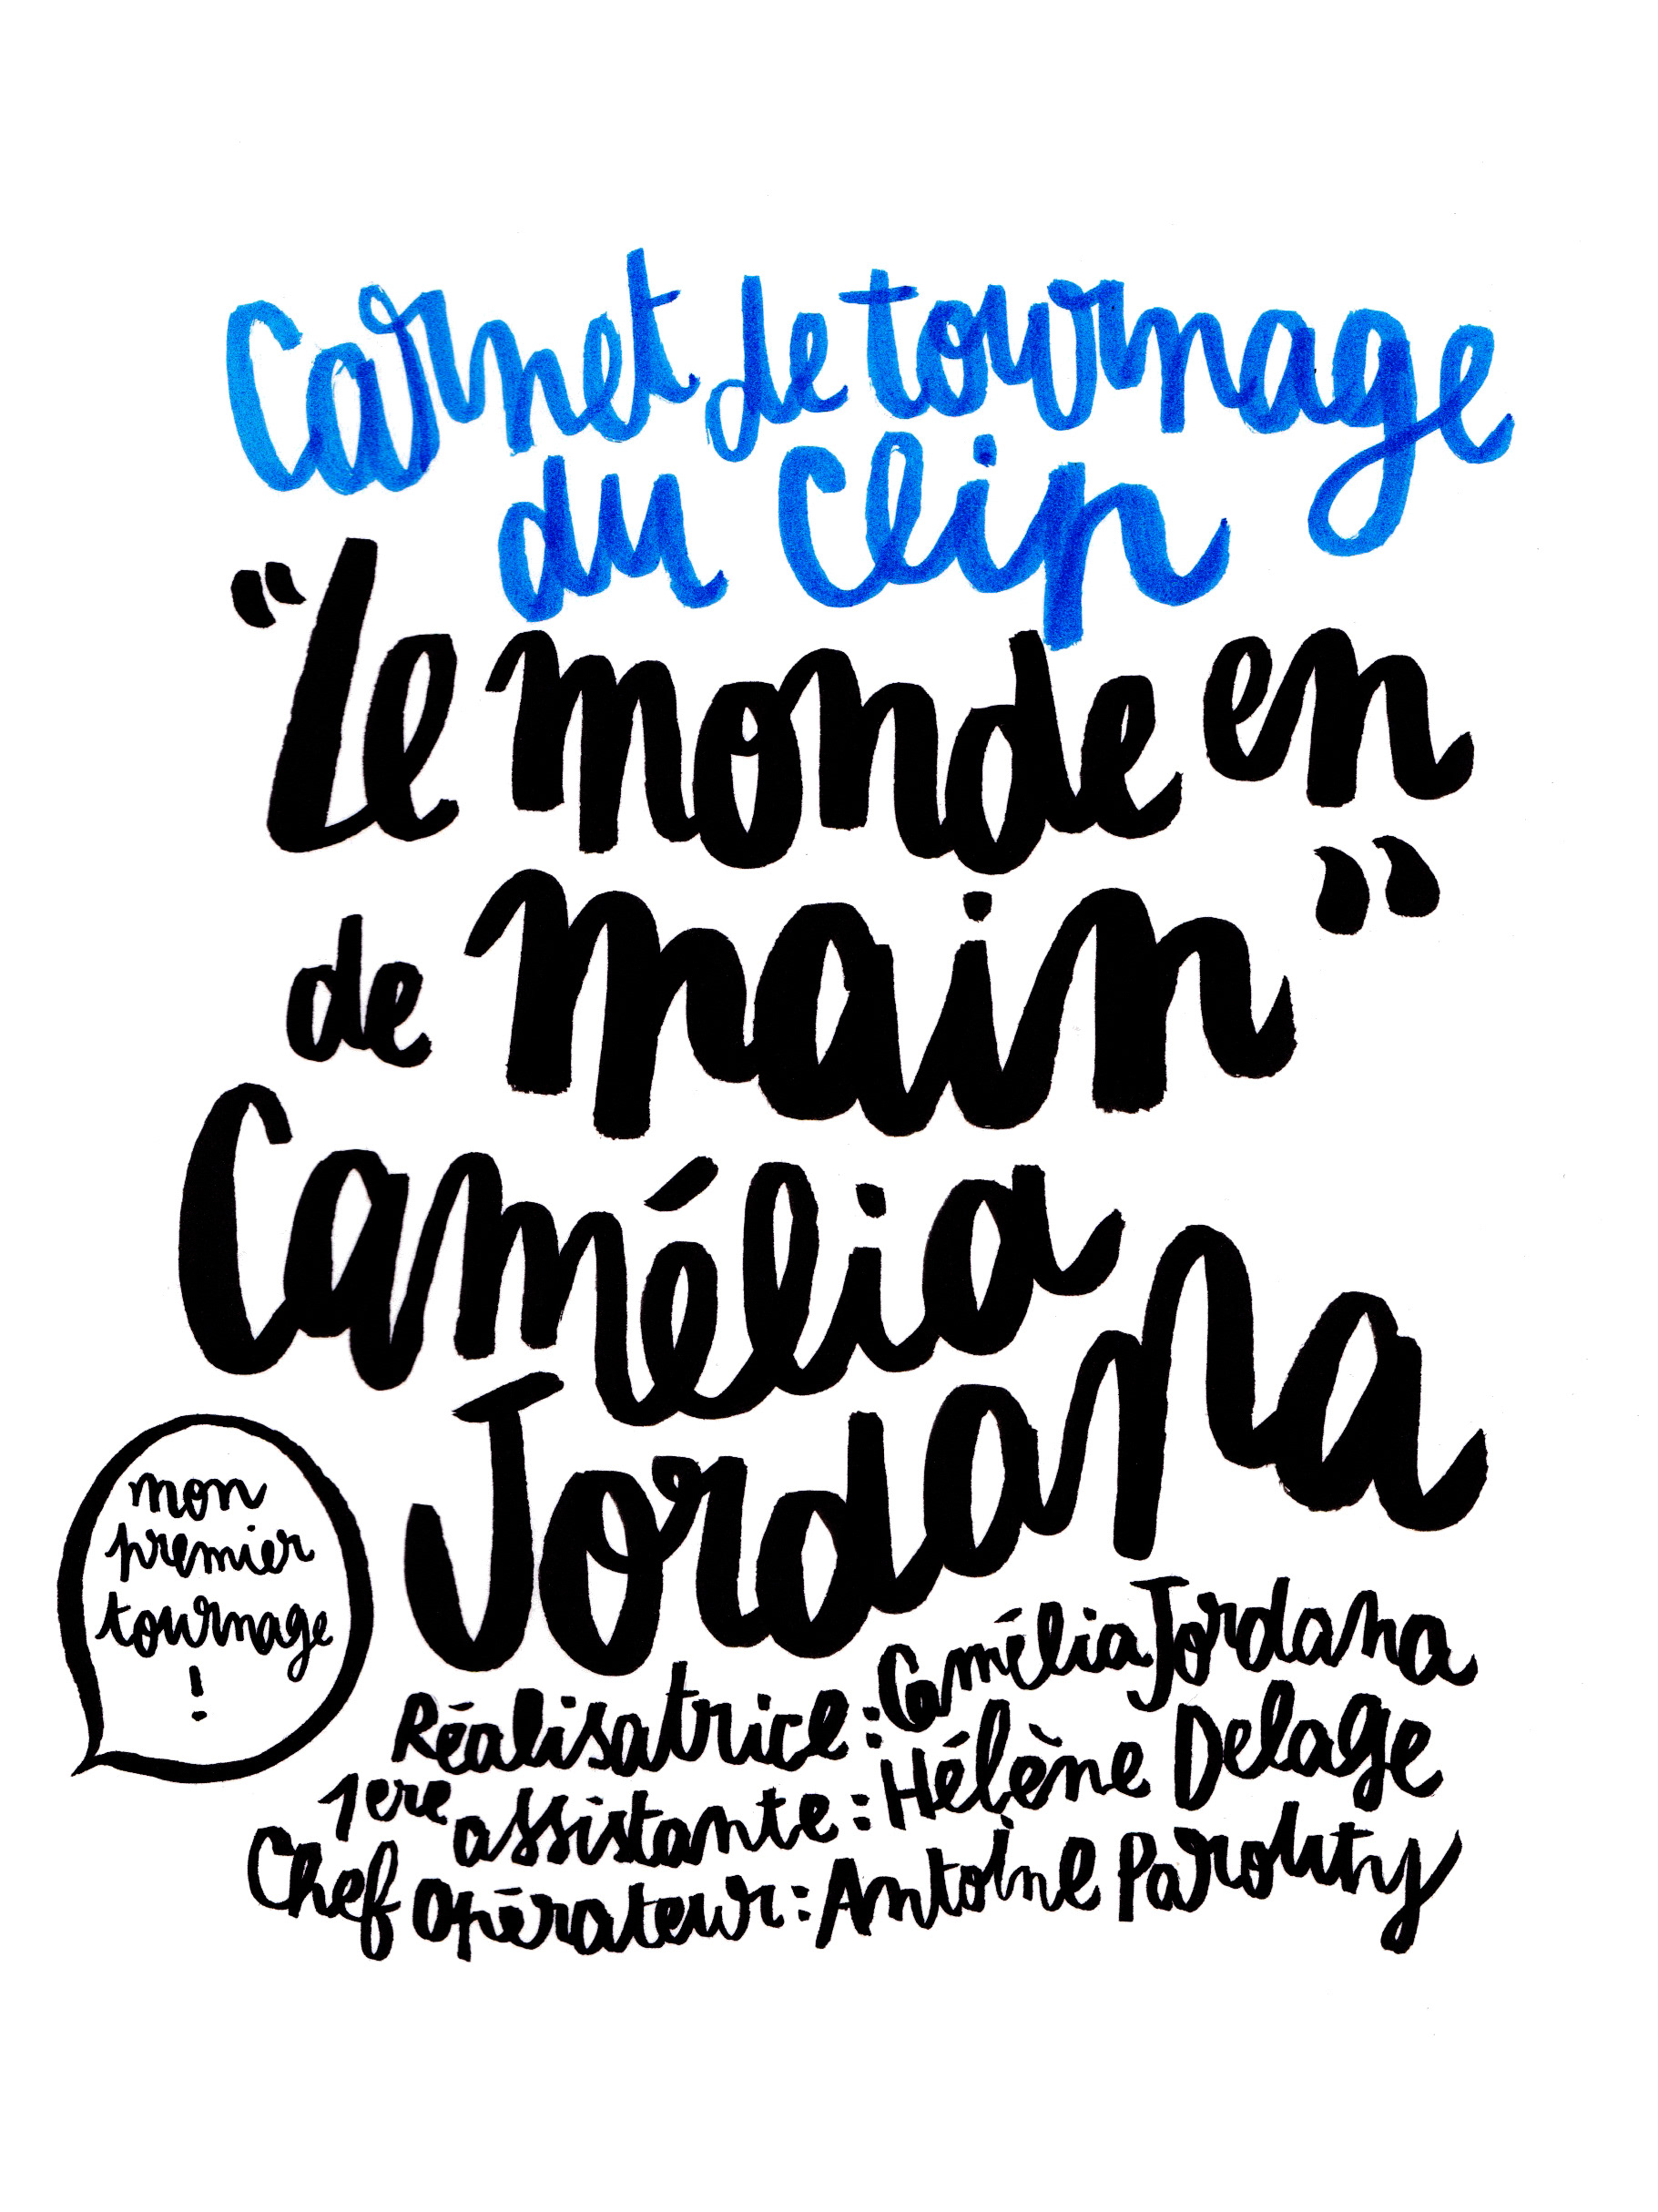 Carnet de tournage
du Clip
“Le monde en
de main”
Camélia
Jordana
mon
premier
tournage
!
Réalisatrice : Camélia Jordana
1ere assistante : Hélène Delage
Chef Opérateur : Antoine Parouty